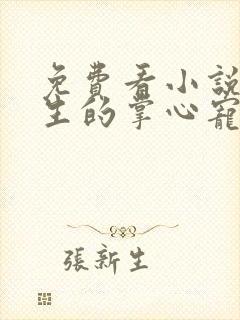 免費看小說
生的掌心寵
張新生